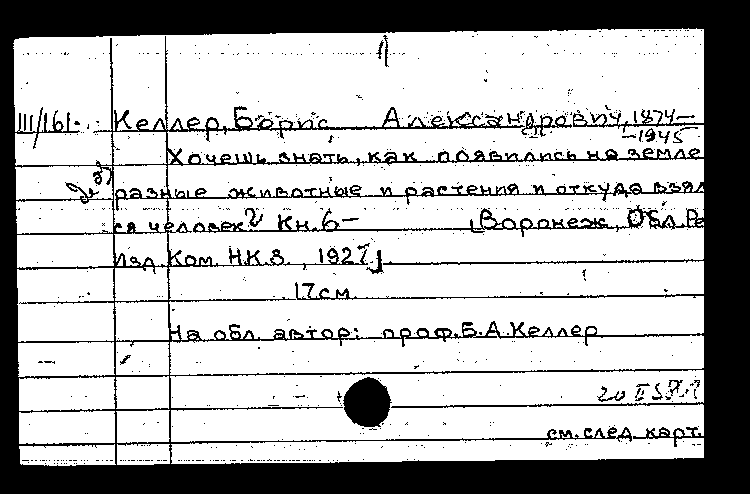 III/161. Келлер, Борис Александрович, 1874-
-1945
Хочешь знать, как появились на земле
разные животные и растения и откуда взял
ся человек? Кн.6- [Воронеж, Обл. Ре
Изд. Ком. Н.К.З., 1927].
17см.
На обл. автор: проф. Б.А. Келлер
20 II
см. след. карт.